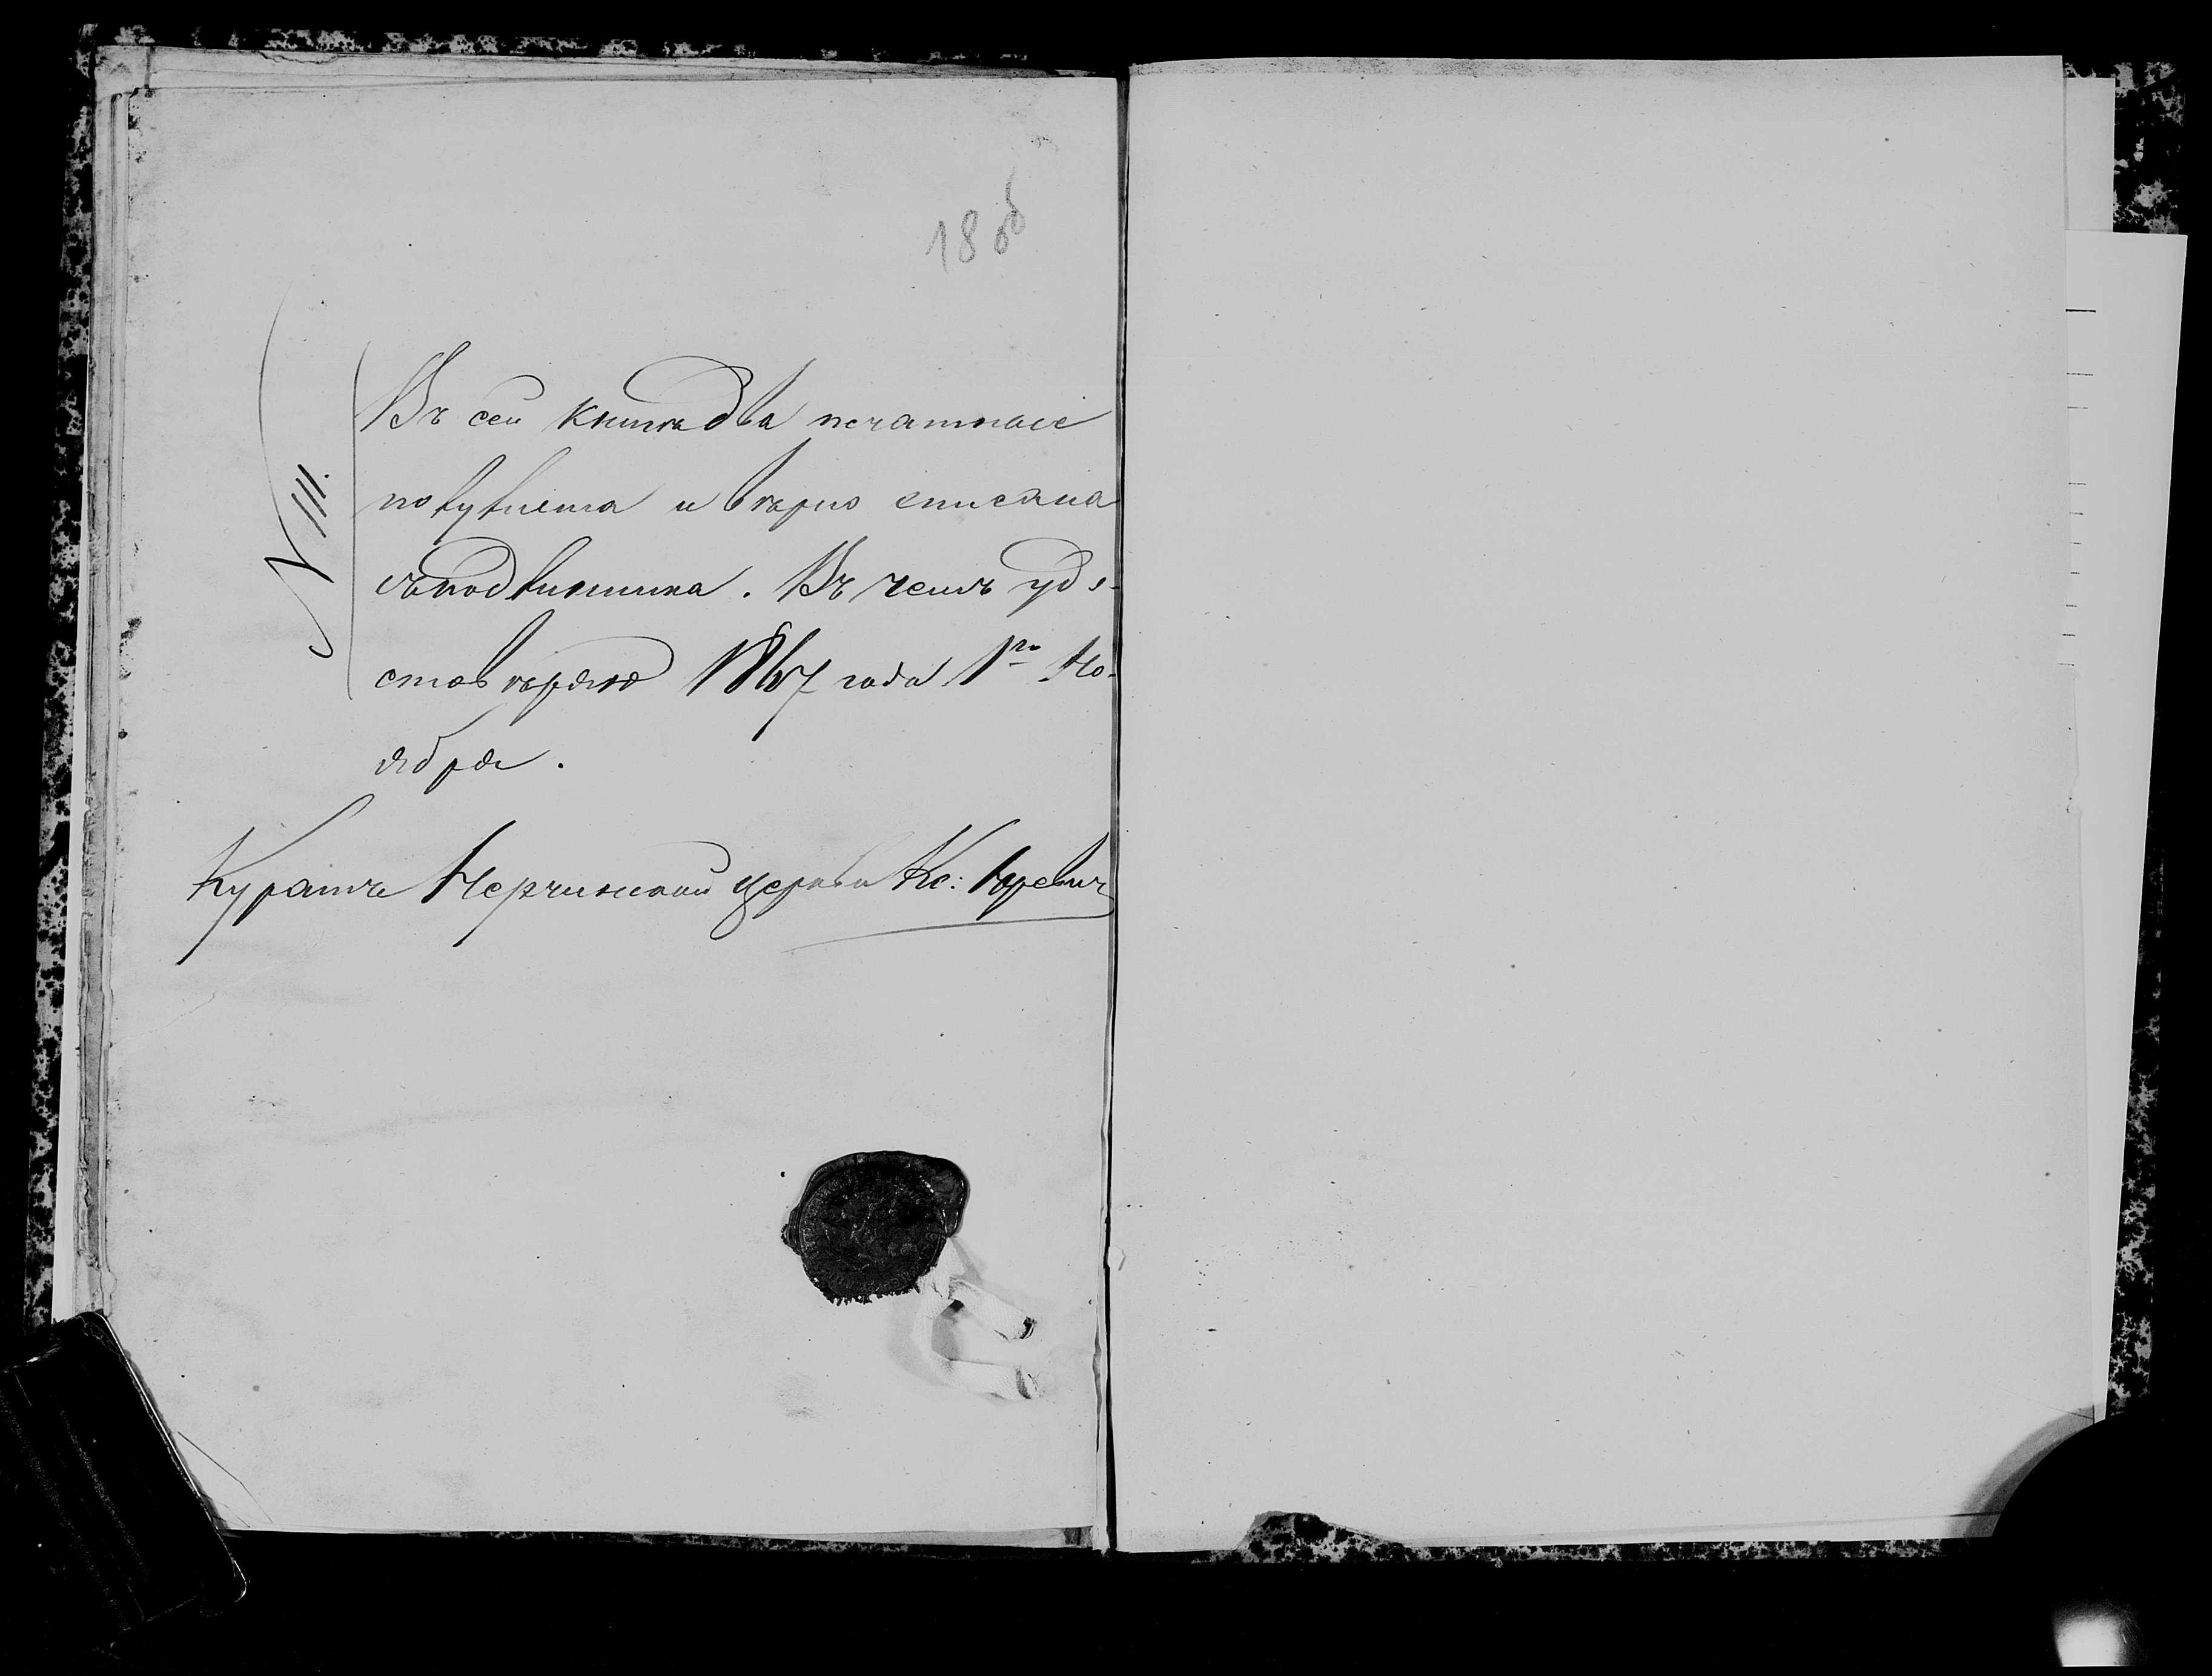 18 об
N 111.
Въ сей книгѣ два печатные
полулиста и вѣрно списана
съ подлинника. Въ чемъ удо-
стовѣряю 1867 года 1го Но-
ября.
Куратъ Нерчинской церкви Кс: Юревич